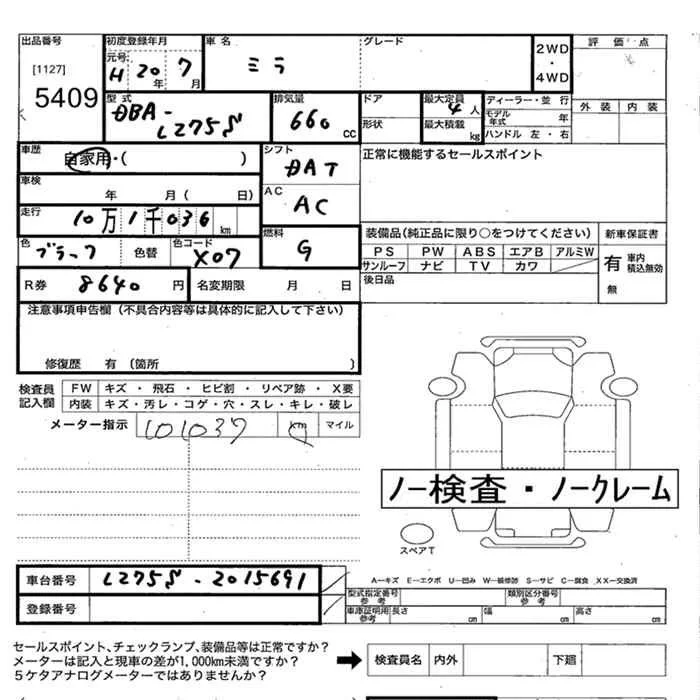 出品番号 初度登録年月 車名 グレード 評価点
[1127] 元号 H 20年 7月 ミラ 2WD・4WD
5409 型式 DBA-L275S 排気量 660 cc ドア 最大定員 4人 ディーラー・並行 外装 内装
形状 最大積載 kg モデル年式 年
ハンドル 左・右
車歴 自家用・( ) シフト DAT 正常に機能するセールスポイント
車検 年 月( 日) AC AC
走行 10万1千036 km
色 ブラック 色替 色コード X07 燃料 G 装備品(純正品に限り○をつけてください) 新車保証書
PS PW ABS エアB アルミW 有 車内積込無効
サンルーフ ナビ TV カワ 無
R券 8640円 名変期限 月 日 後日品
注意事項申告欄(不具合内容等は具体的に記入して下さい)
修復歴 有(箇所
検査員記入欄 FW キズ・飛石・ヒビ割・リペア跡・X要
内装 キズ・汚レ・コゲ・穴・スレ・キレ・破レ
メーター指示 101037 km マイル
ノー検査・ノークレーム
スペアT
車台番号 L275S-2015691 A-キズ E-エクボ U-凹み W-補修跡 S-サビ C-腐食 XX-交換済
型式指定番号参考 類別区分番号参考
登録番号 車庫証明用参考 長さ cm 幅 cm 高さ cm
セールスポイント、チェックランプ、装備品等は正常ですか?
メーターは記入と現車の差が1,000km未満ですか? 検査員名 内外 下廻
5ケタアナログメーターではありませんか?